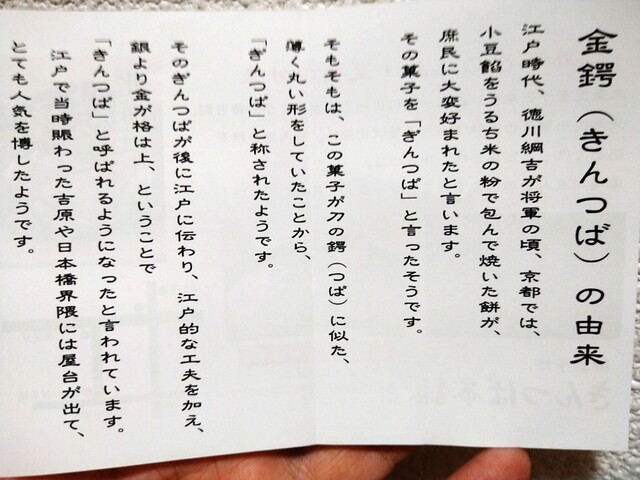 金鍔（きんつば）の由来
江戸時代、徳川綱吉が将軍の頃、京都では、
小豆餡をうるち米の粉で包んで焼いた餅が、
庶民に大変好まれたと言います。
その菓子を「ぎんつば」と言ったそうです。
そもそもは、この菓子が刀の鍔（つば）に似た、
薄く丸い形をしていたことから、
「ぎんつば」と称されたようです。
そのぎんつばが後に江戸に伝わり、江戸的な工夫を加え、
銀より金が格は上、ということで
「きんつば」と呼ばれるようになったと言われています。
江戸で当時賑わった吉原や日本橋界隈には屋台が出て、
とても人気を博したようです。